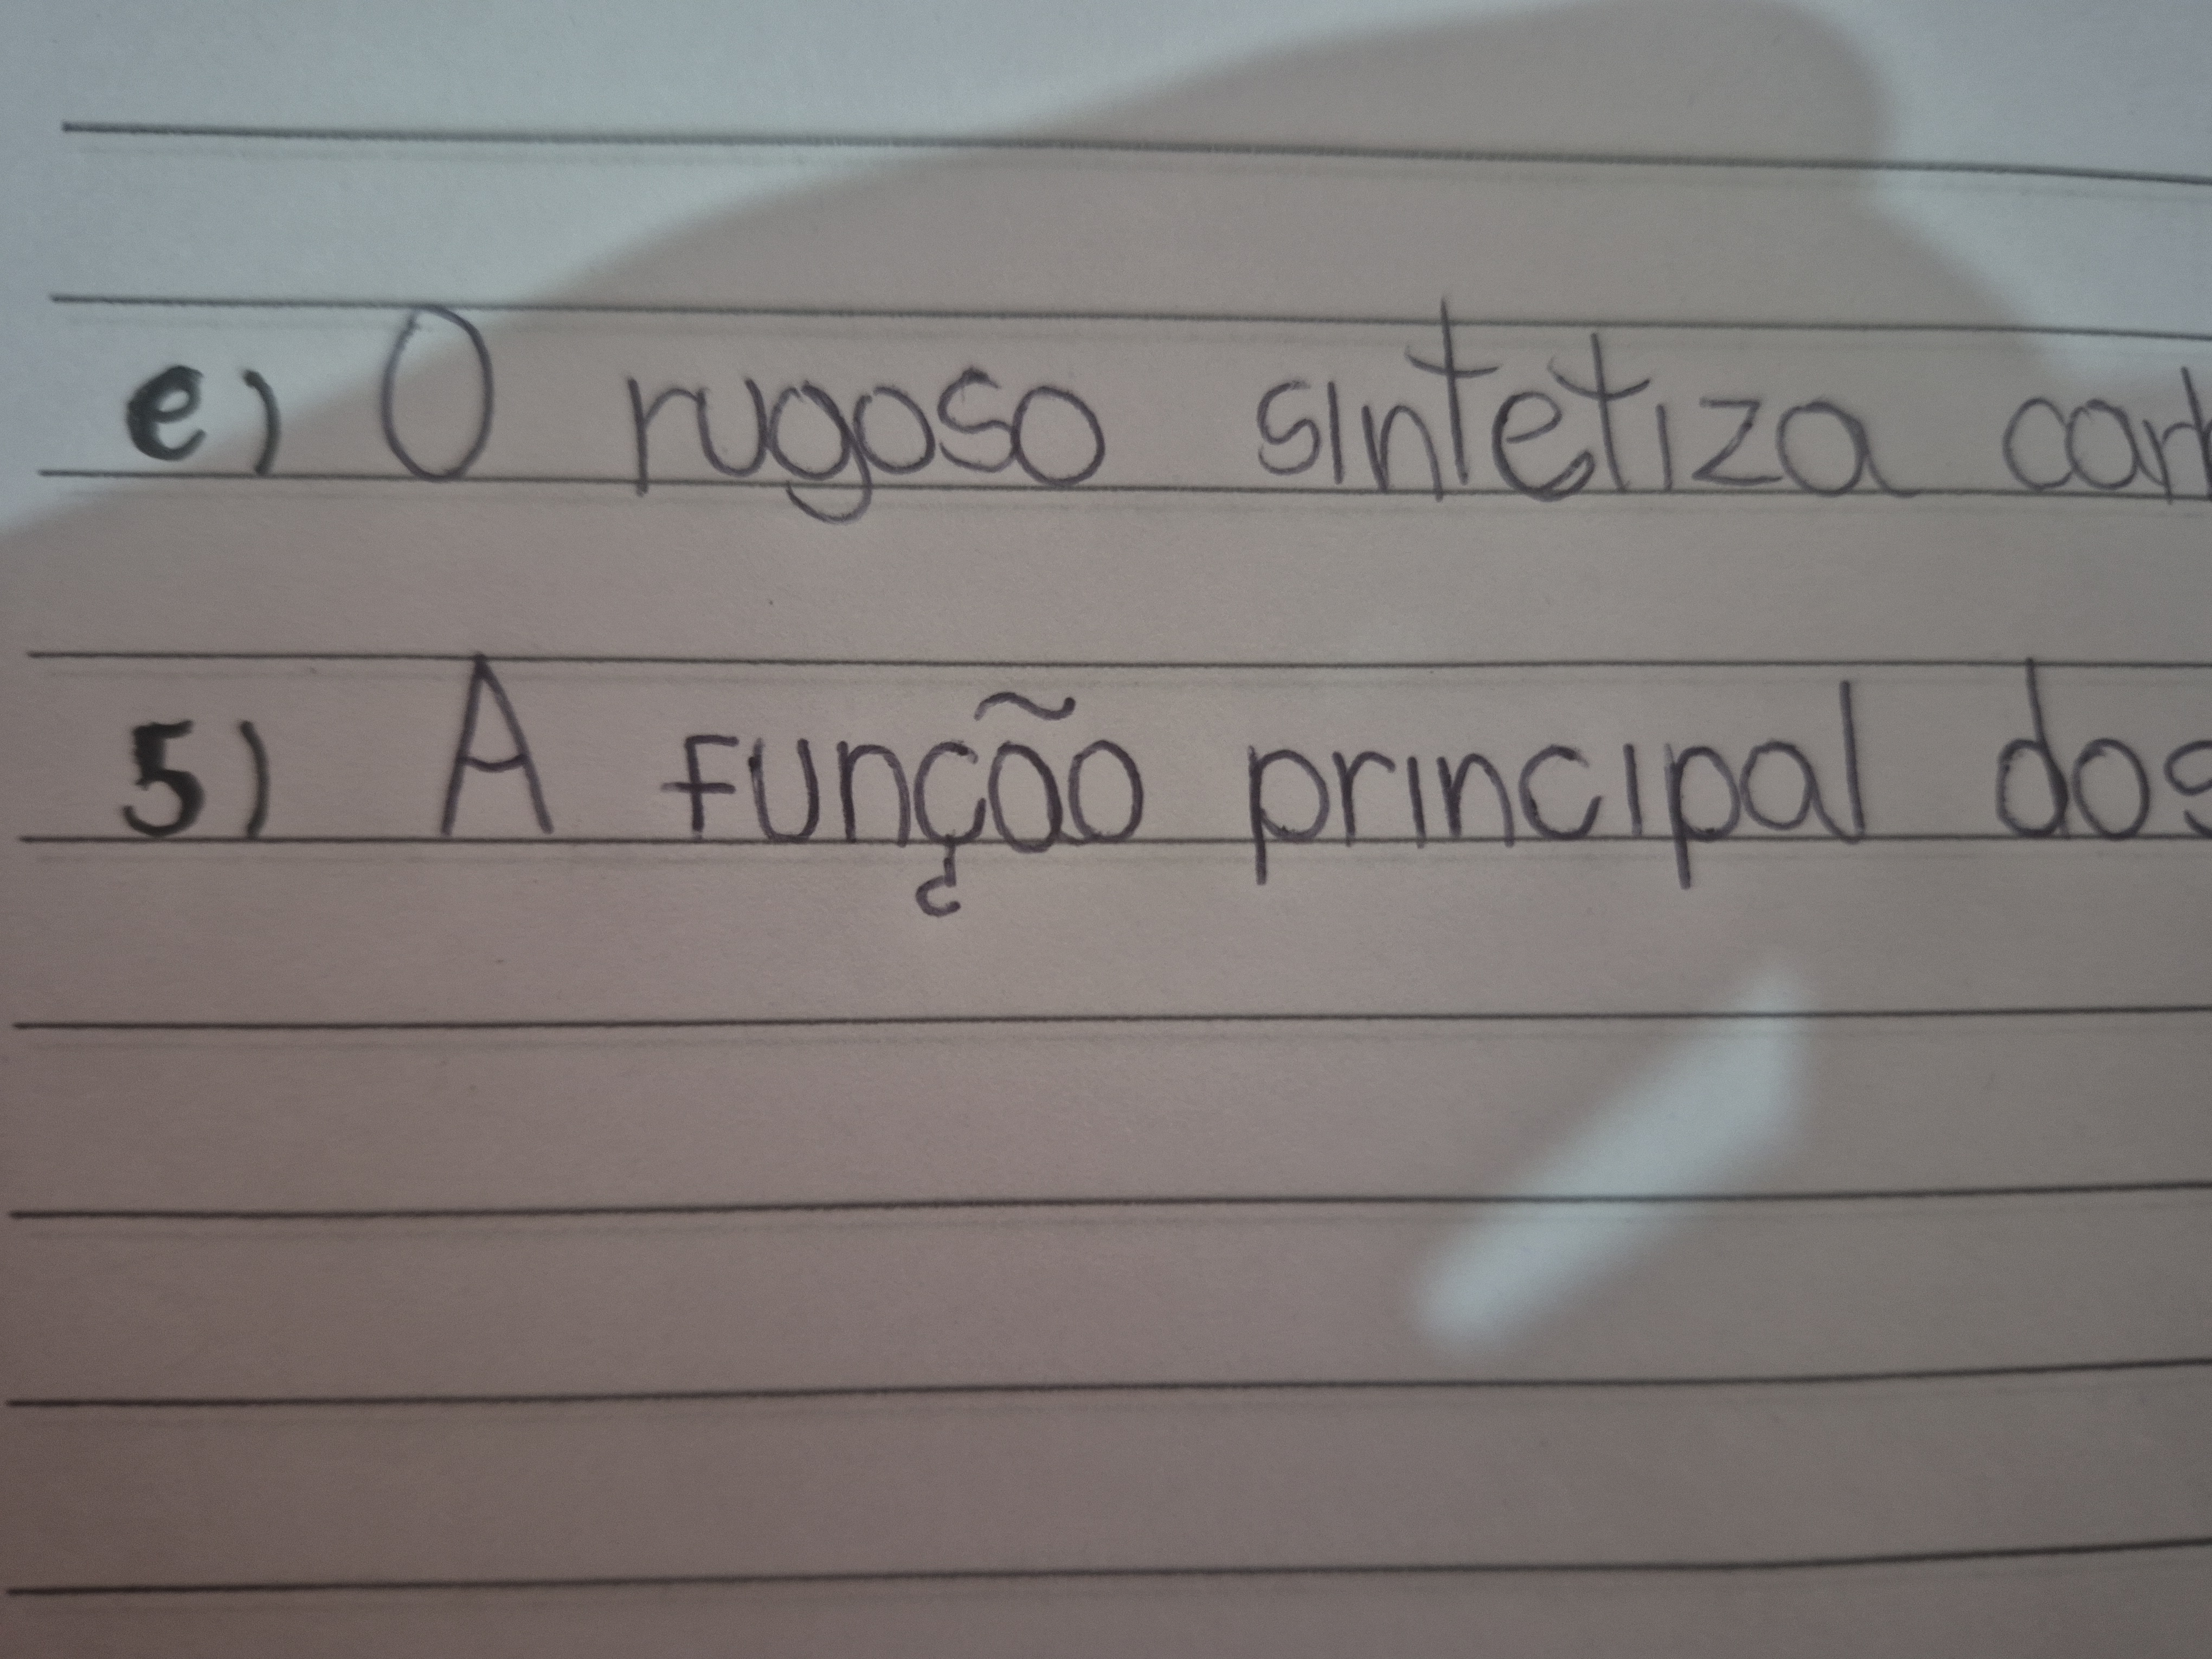 e) O rugoso sintetiza
5) A função principal